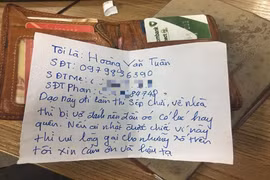 Tôi là Hoàng Văn Tuân
SĐT: 0979896390
SĐT Mẹ:
SĐT Phan: 90748
Dạo này đi làm thì Sếp chửi, về nhà
thì bị vợ đánh nên đầu óc có lúc hay
quên. Nếu ai nhặt được chiếc ví này
thì vui lòng gọi cho những số trên
tôi xin cảm ơn và hậu tạ